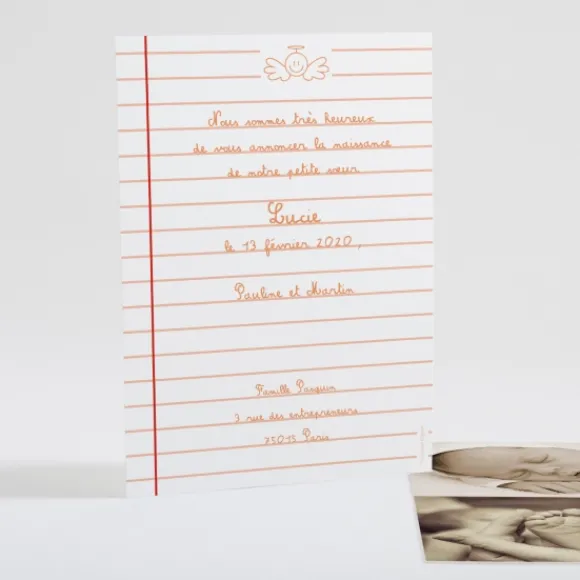 Nous sommes très heureux
de vous annoncer la naissance
de notre petite sœur
Lucie
le 13 février 2020,
Pauline et Martin
Famille Panquin
3 rue des entrepreneurs
75013 Paris